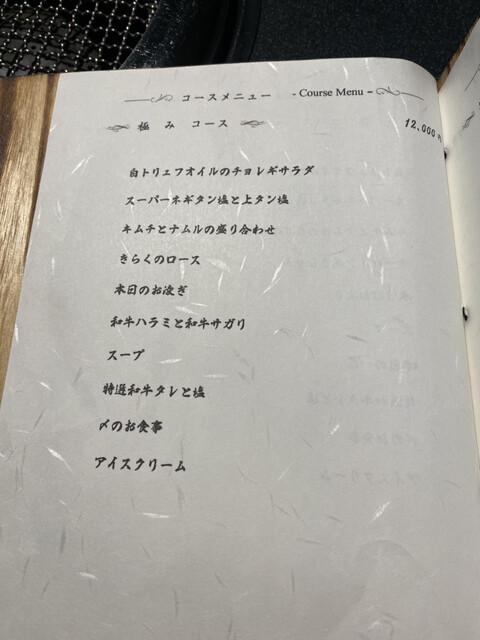 コースメニュー - Course Menu -
極 み コース 12,000円
白トリュフオイルのチョレギサラダ
スーパーネギタン塩と上タン塩
キムチとナムルの盛り合わせ
きらくのロース
本日のお凌ぎ
和牛ハラミと和牛サガリ
スープ
特選和牛タレと塩
〆のお食事
アイスクリーム